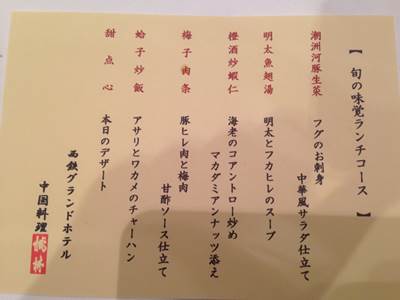 【 旬の味覚ランチコース 】
潮洲河豚生菜
フグのお刺身
中華風サラダ仕立て
明太魚翅湯
明太とフカヒレのスープ
橙酒炒蝦仁
海老のコアントロー炒め
マカダミアンナッツ添え
梅子肉条
豚ヒレ肉と梅肉
甘酢ソース仕立て
蛤子炒飯
アサリとワカメのチャーハン
甜点心
本日のデザート
西鉄グランドホテル
中国料理